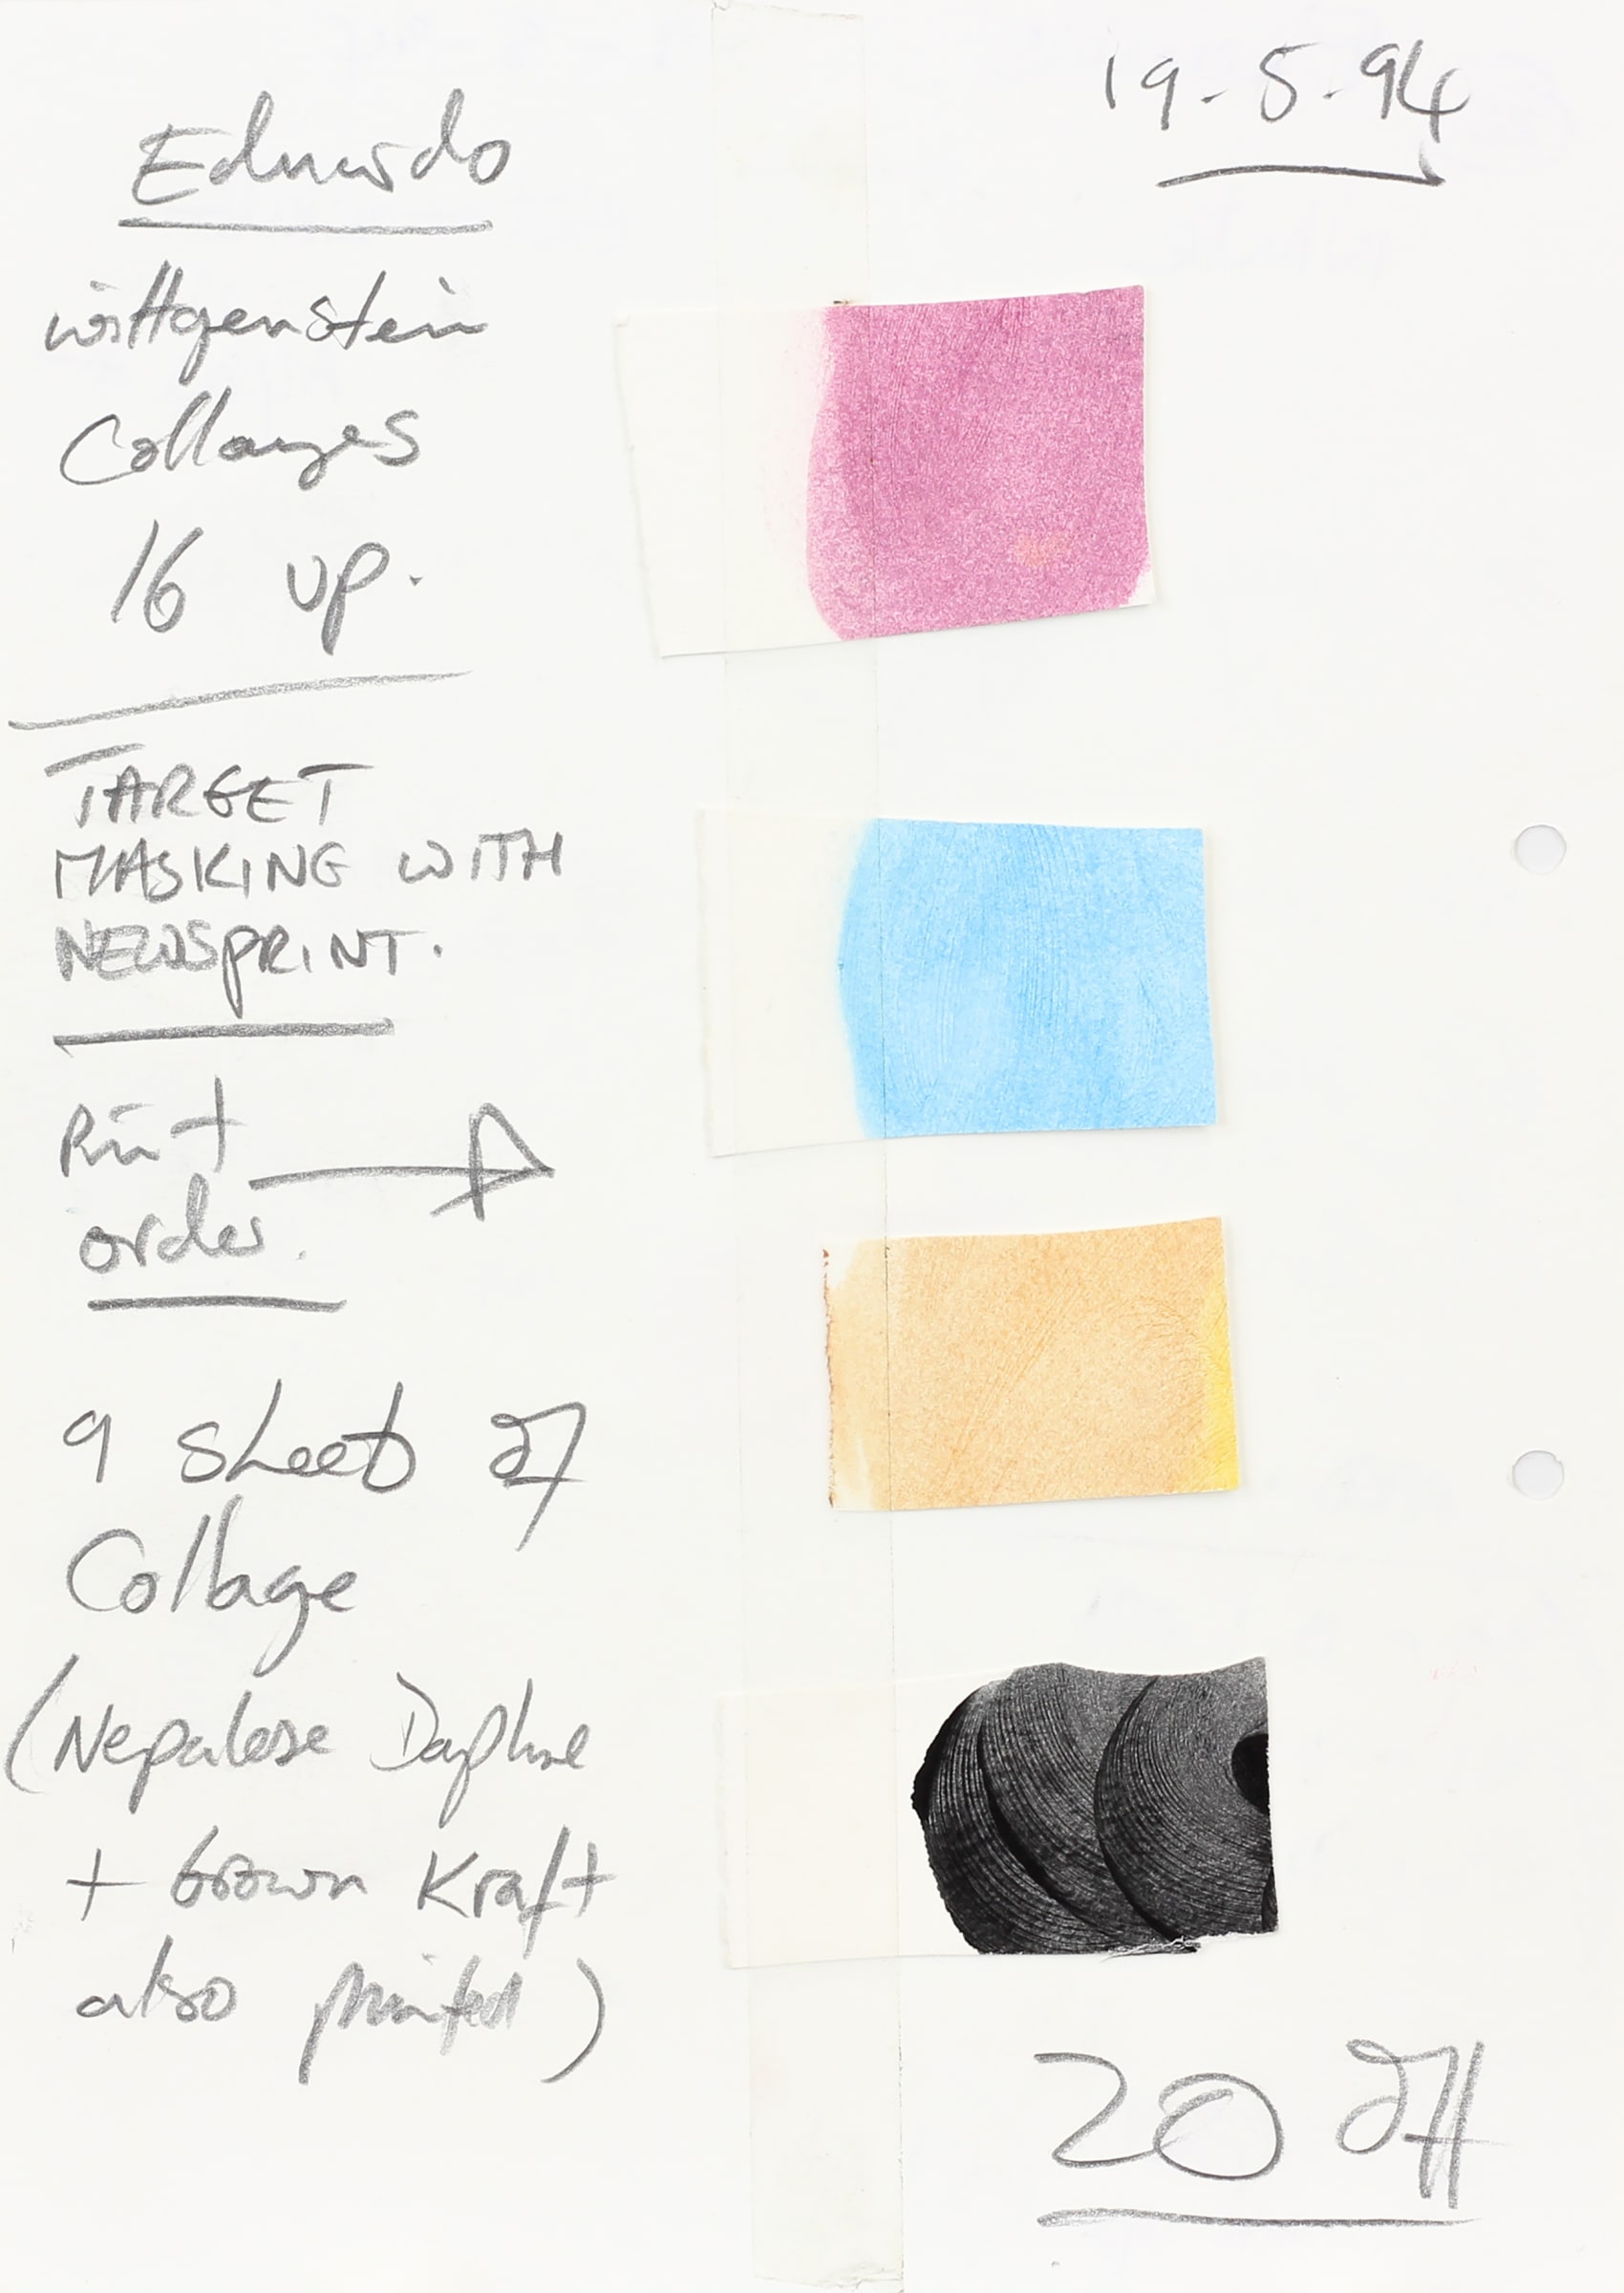 19-5-94
Eduardo
Wittgenstein
Collages
16 up.
TARGET
MASKING WITH
NEWSPRINT.
Print
order.
9 sheet of
Collage
(Nepalese Daphne
+ brown Kraft
also printed)
20 off